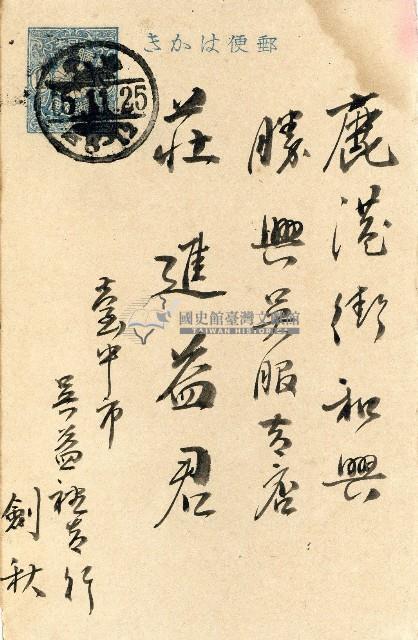 郵便はかき
15.11.25
鹿港街和興
勝興吳服支店
莊進益君
臺中市
吳益社支行
劍秋
國史館臺灣文獻館
TAIWAN HISTORICA